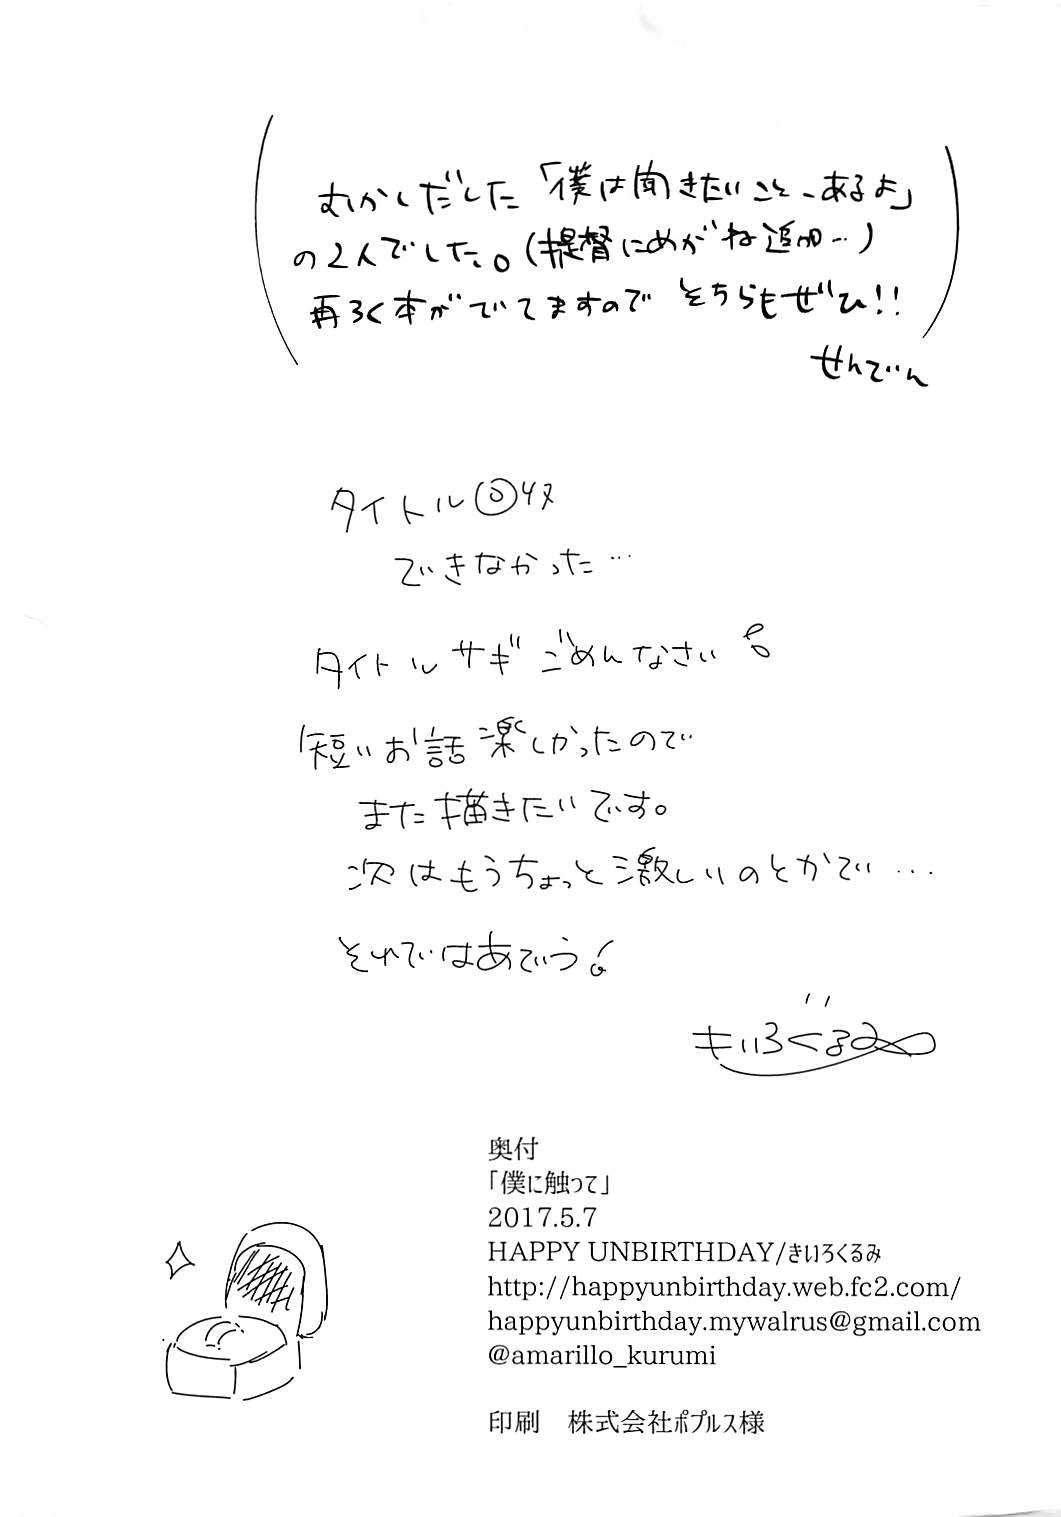 むかしだした「僕は聞きたいこと、あるよ」
の2人でした。(提督にめがね追加…)
再ろく本がでてますので そちらもぜひ!!
せんでん
タイトル
できなかった…
タイトルサギ ごめんなさい
短いお話楽しかったので
また描きたいです。
次はもうちょっと激しいのとかで…
それではあでゅう!
きいろくるみ
奥付
「僕に触って」
2017.5.7
HAPPY UNBIRTHDAY/きいろくるみ
http://happyunbirthday.web.fc2.com/
happyunbirthday.mywalrus@gmail.com
@amarillo_kurumi
印刷　株式会社ﾎﾟﾌﾟﾙｽ様